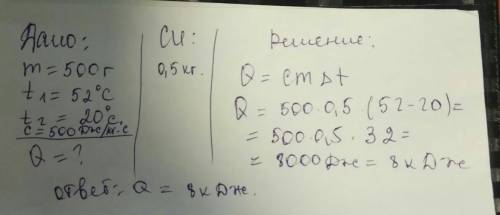 Дано:
m = 500г
t1 = 52°C
t2 = 20°C
c = 500 Дж/кг·с
Q = ?
СИ:
0,5 кг.
Решение:
Q = cm∆t
Q = 500·0,5·(52-20)=
= 500·0,5·32=
= 8000 Дж = 8 кДж
ответ: Q = 8 кДж.